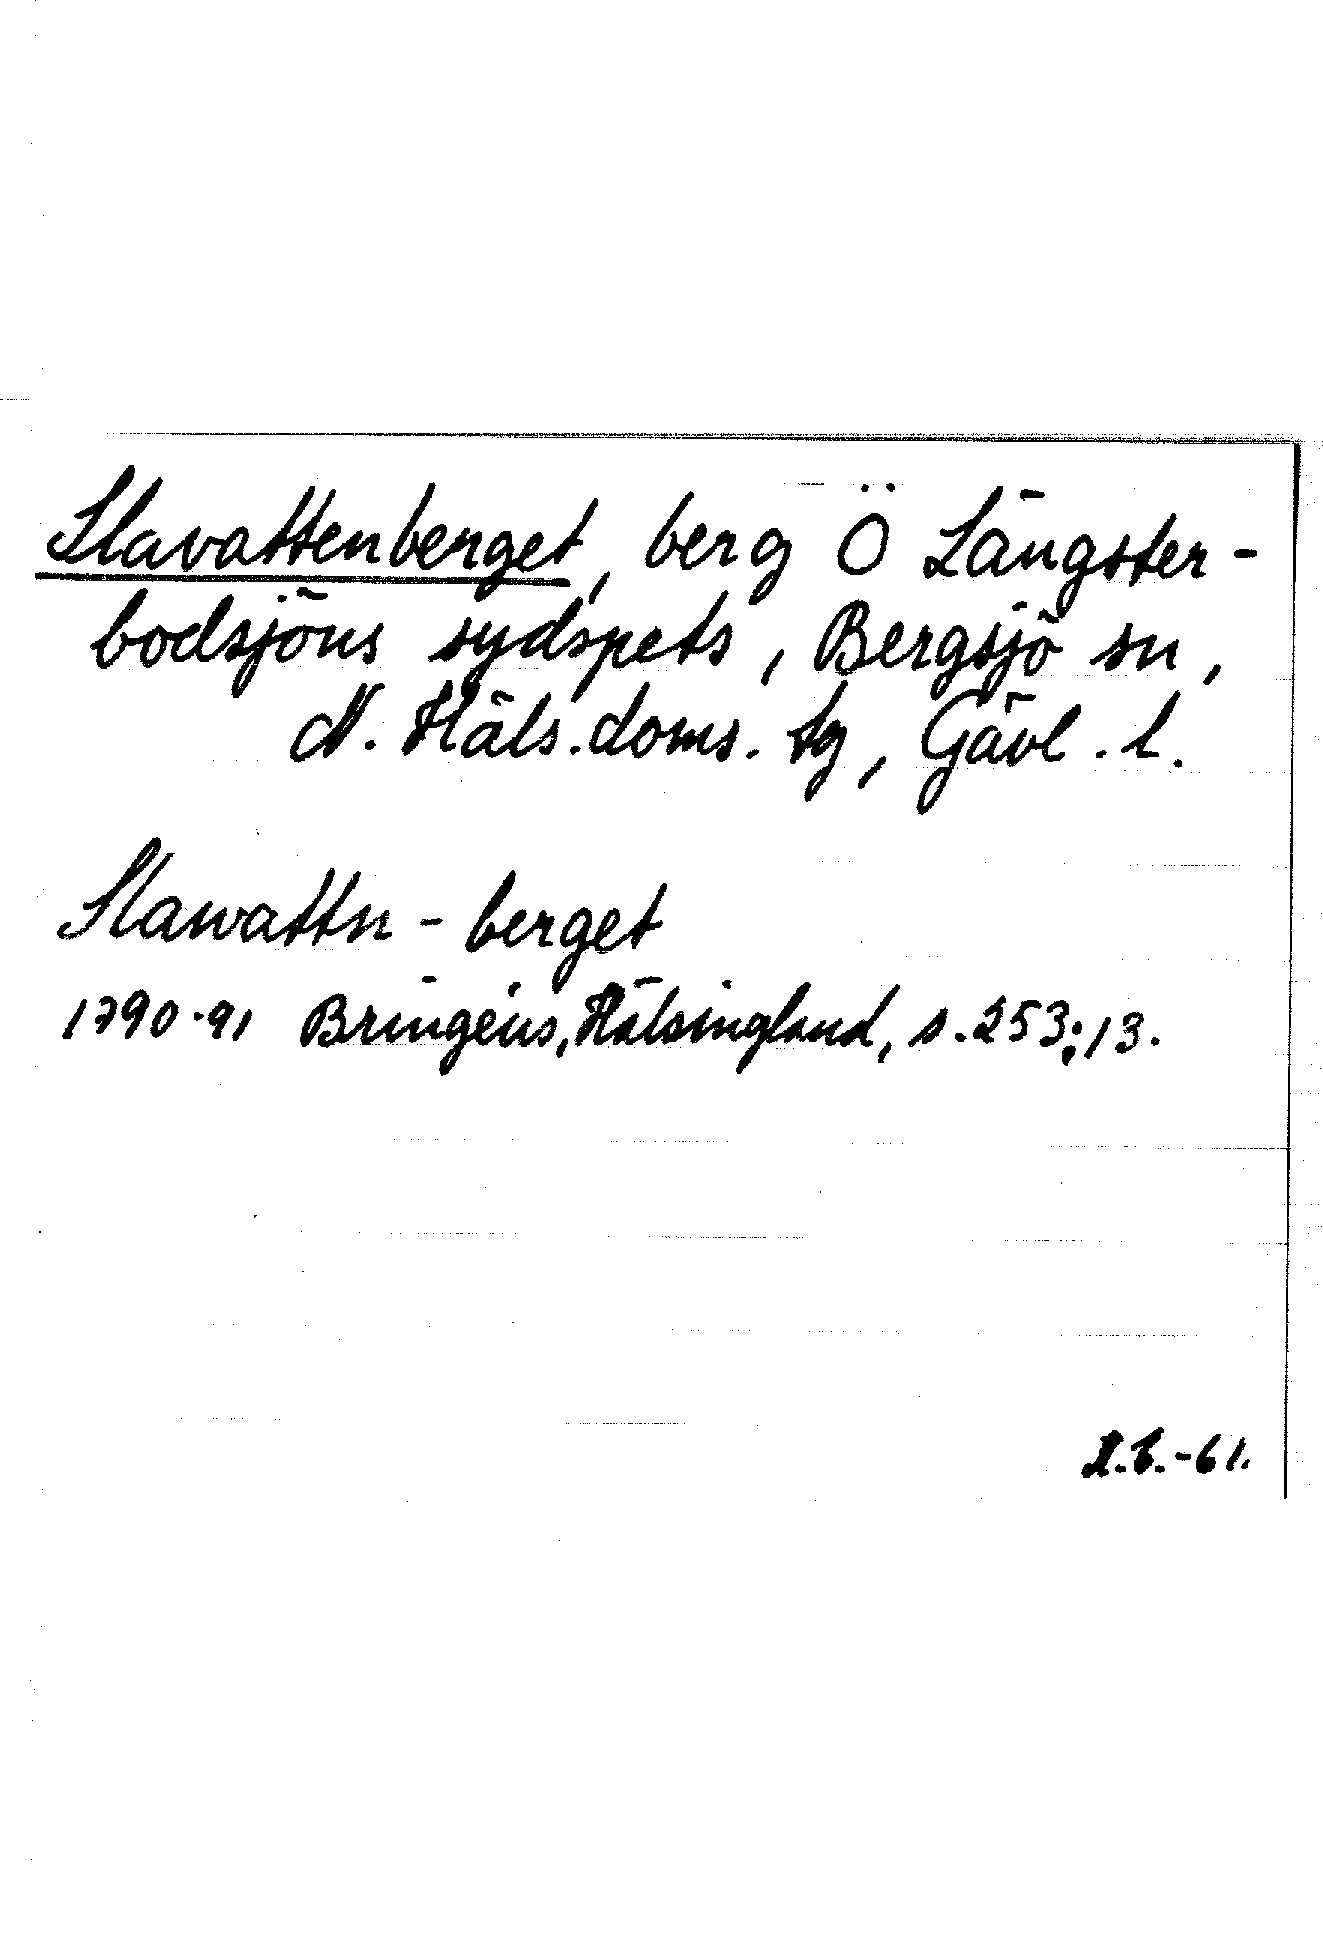 Slavattenberget, berg Ö Längster-
bodsjöns sydspets, Bergsjö sn,
N. Häls. doms. tg, Gävl. l.
Slawattn-berget
1790-91 Bringéus, Hälsingland, s. 253:13.
-61.